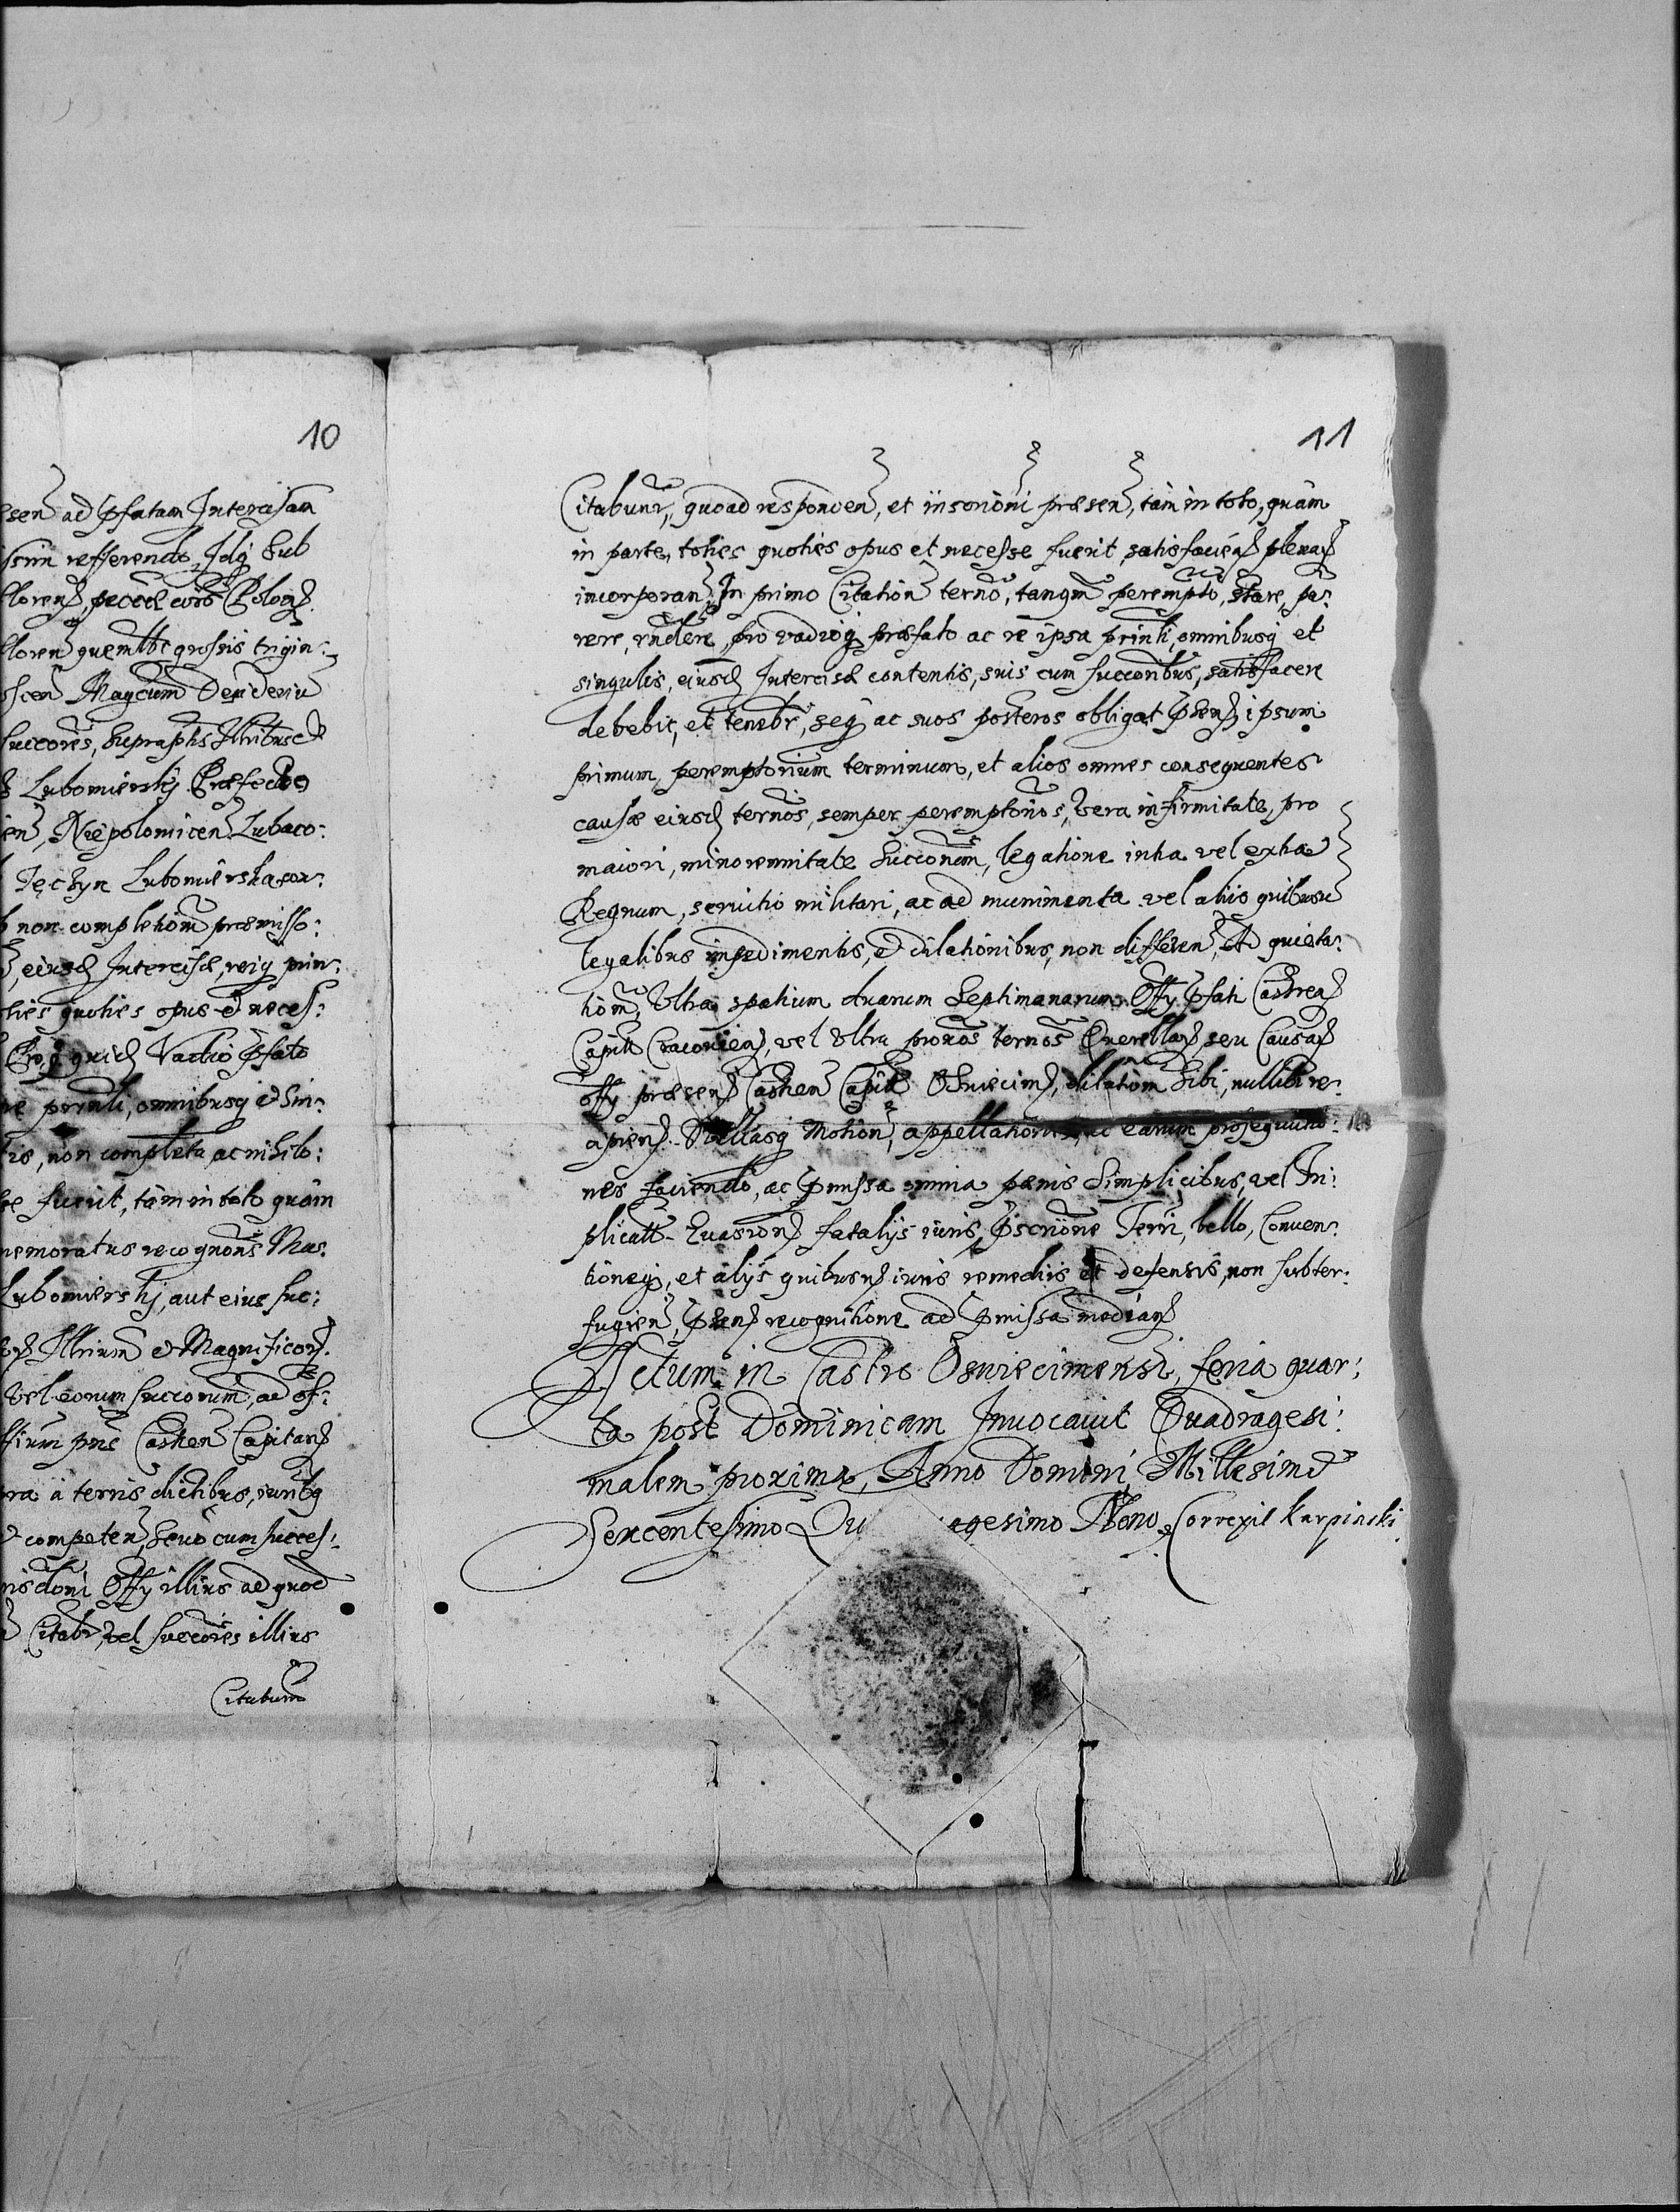 10
ad Pfatam Intercisam
refferendo Idq sub
floren
floren grossis trigin:
Succores, supraptis
Lubomierskj Præfecto
Niepolomicen Lubaco:
Tęczyn Lubomierska
non completioni præmisso:
eiusd Intercisæ, reiq prin:
ties quoties opus et necess:
Vadio Pfato
prinli, omnibusq et sin:
non completa, ac nihilo:
fuerit, tàm in toto quàm
memoratus recognons
Lubomierskj, aut eius suc:
Illrium et Magnificor
Vel eorum succorum, ad of:
Castren Capitan
à ternis
competen, seuò cum succes:
Offy illius ad quod
Citabr, vel succores illius
Citabunr
11
Citabunr, quoad responden, et inscrioni præsen, tàm in toto, quàm
in parte, toties quoties opus et necesse fuerit, satisfacien plenar
incorporan, In primo Citation terno, tanqm perempto, stare, pa:
rere, rndere, pro vadioq præfato ac re ipsa prinli, omnibusq et
singulis, eiusd Intercisæ contentis, suis cum succoribus, satisfacere
debebit, et tenebr, seq ac suos posteros obligat Psen ipsum
primum peremptorium terminum, et alios omnes consequentes
causæ eiusd ternos, semper peremptorios, vera infirmitate, pro
maiori, minorennitate Succorum, legatione intra vel extra
Regnum, seruitio militari, ac ad munimenta vel aliis quibusu
legalibus impedimentis, et dilationibus, non differen, Ad quieta:
tiom, Vltra spatium duarum Septimanarum Offy Pfati Castren
Capitl Cracouien, vel Vltra proxos ternos Querellar seu Causar
offy præsen Castren Capitl Osuiecim, dilatiom sibi, nullibi re:
apien. Nullasq Motion, appellationes, ac earum prosequutio:
nes faciendo, ac Pmissa omnia pænis simplicibus, vel Tri:
plicatt Euasion fatalys iuris, Pscriione Terri, bello, Conuen:
tioneq, et alijs quibusu iuris remediis et defensis, non subter:
fugien, Psen recognitione ad Pmissa median
Actum in Castro Osuiecimensi, feria quar:
ta post Dominicam Inuocauit Quadragesi:
malem proxima, Anno Domini Millesimo
Sexcentesimo Qu agesimo Nono Correxit Karpinski